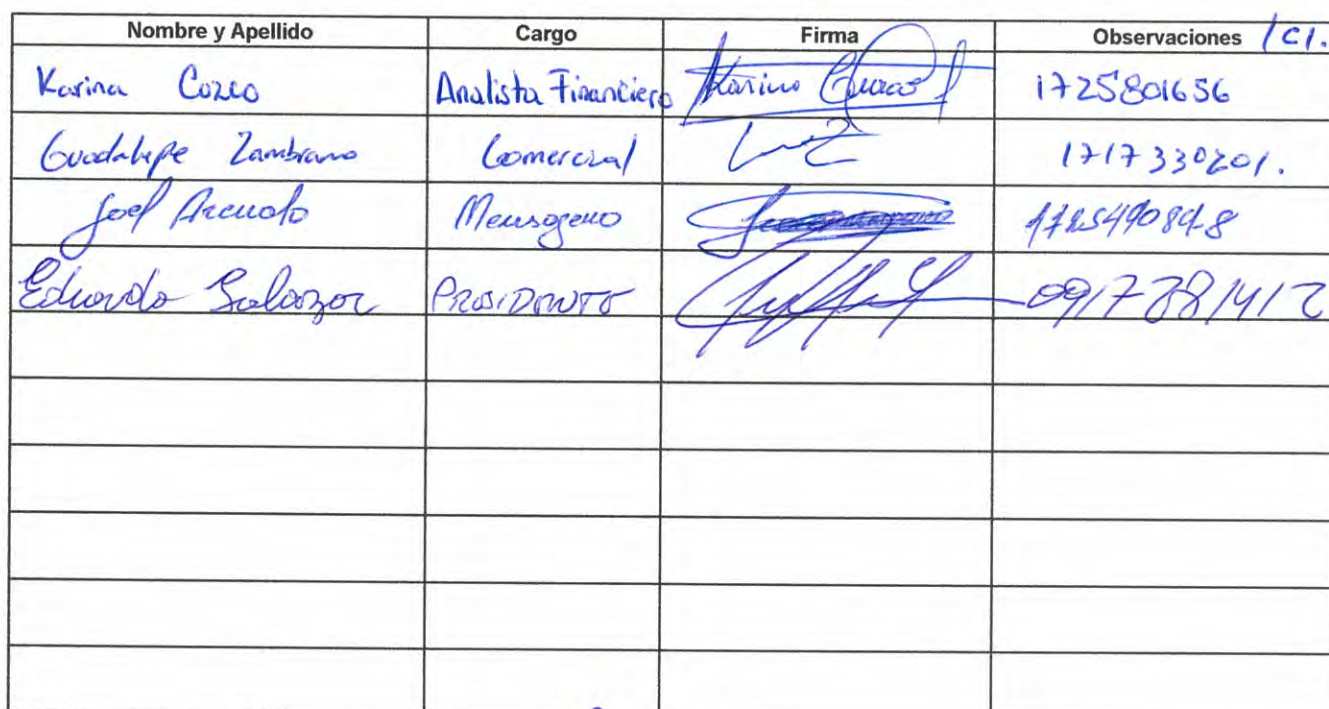 Nombre y Apellido Cargo Firma Observaciones /CI.
Karina Cuzco Analista Financiero Karina Cuzco 1725801656
Guadalupe Zambrano Comercial 1717330201.
Joel Mensajero
Eduardo Salazar PRESIDENTE 0917281412